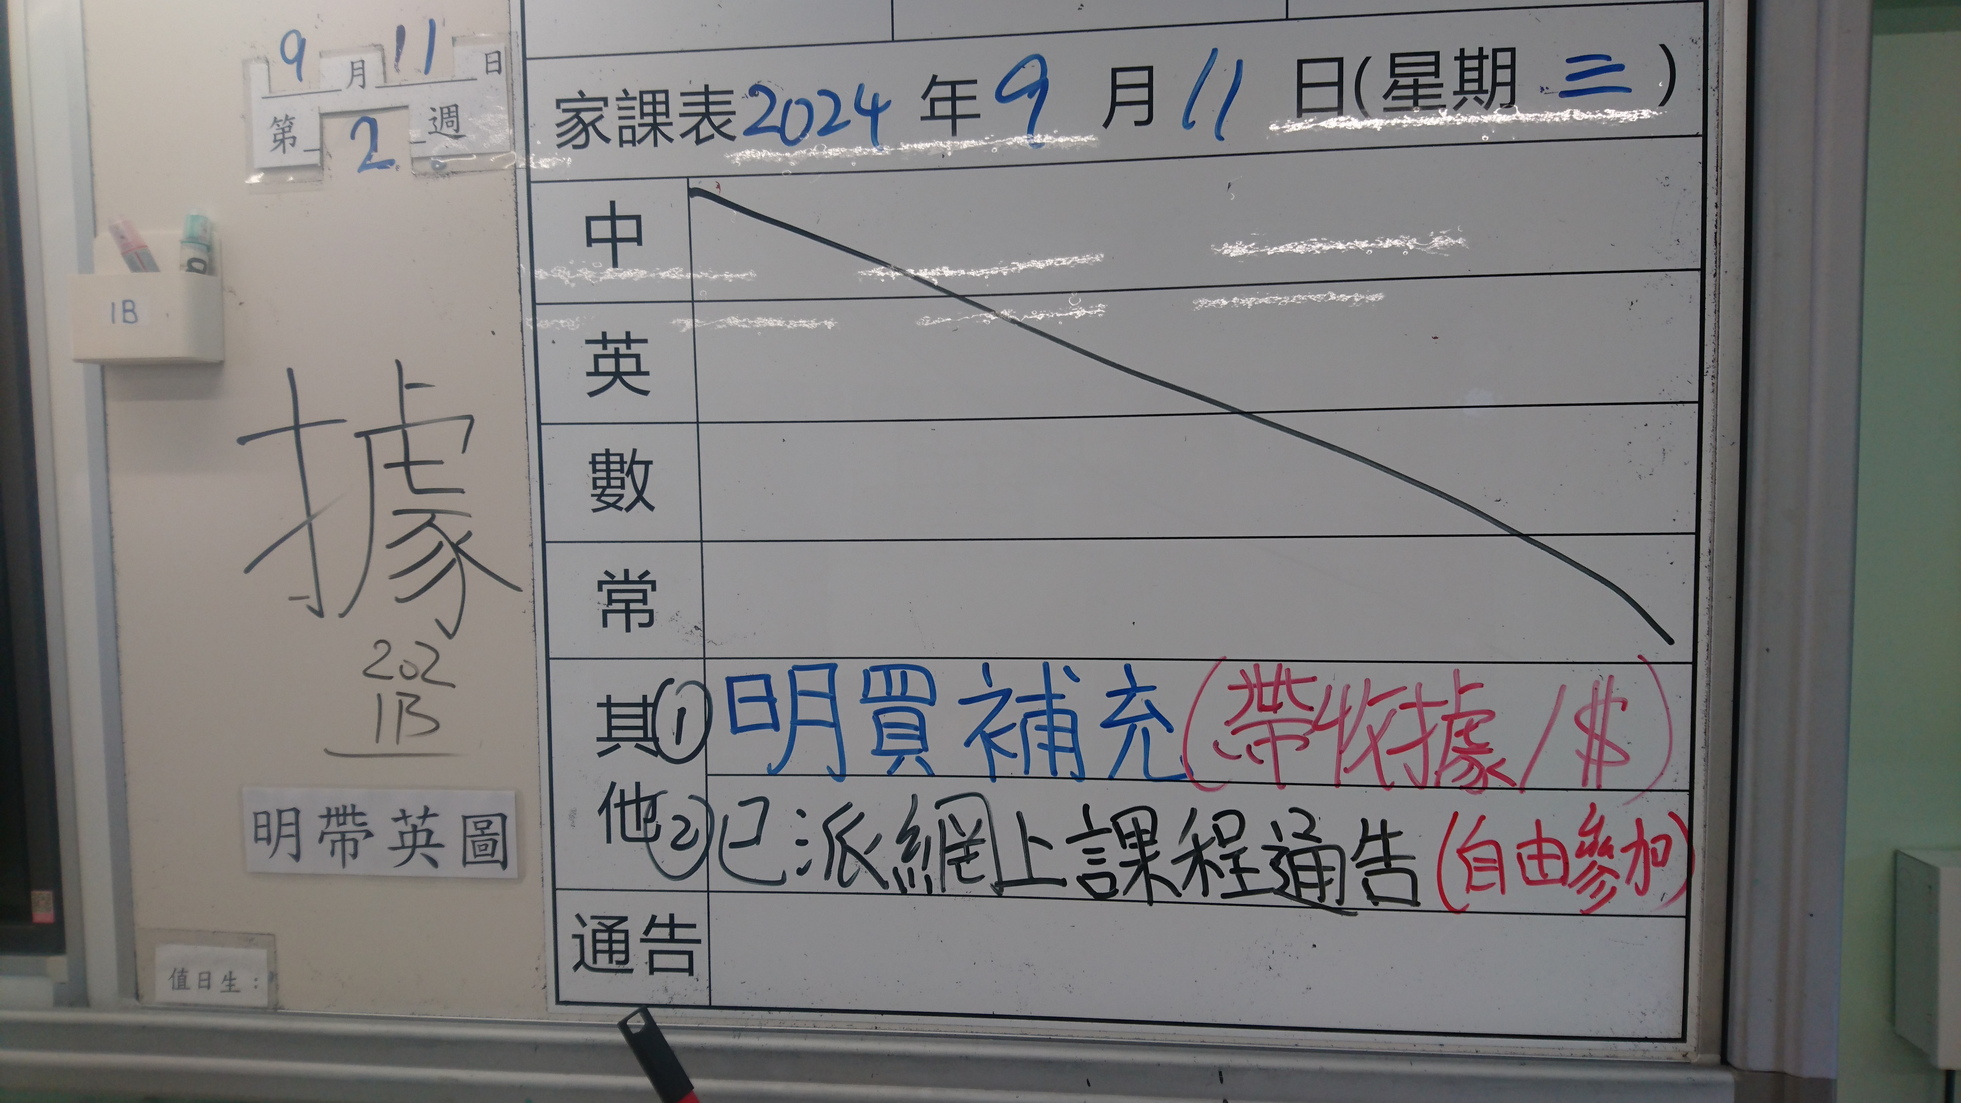 9月11日
第2週
1B
據
202
1B
明帶英圖
值日生：
家課表2024年9月11日(星期三)
中
英
數
常
其他
①明買補充(帶收據/$)
②已派網上課程通告(自由參加)
通告